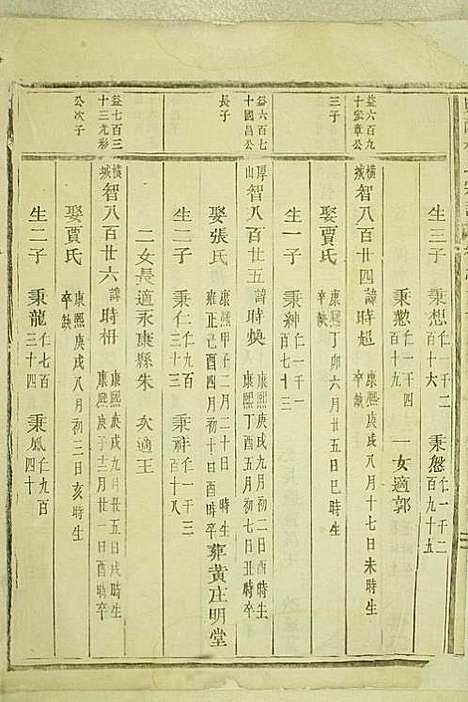 生三子 秉想 仁一千二百十六 秉慇 仁一千二百九十五
秉懃 仁一千四百十九 一女適郭
益六百九十 公
三子
橫城 智八百廿四 諱時超 康熙庚戌八月十七日未時生 卒缺
娶賈氏 康熙丁卯六月廿五日巳時生 卒缺
生一子 秉紳 仁一千一百七十三
益六百七十國昌公
長子
厚山 智八百廿五 諱時煥 康熙庚戌九月初二日 時生 康熙丁酉八月初七日丑時卒
娶張氏 康熙甲子二月二十日 時生 雍正己酉四月初十日酉時卒 葬黄庄明堂
生二子 秉仁 仁九百三十三 秉祥 仁一千三百十八
二女長適永康縣朱 次適王
益七百三十三光彩
公次子
橫城 智八百廿六 諱時相 康熙庚戌九月廿五日戌時生 康熙庚子三月廿一日酉時卒
娶賈氏 康熙庚戌八月初三日亥時生 卒缺
生二子 秉龍 仁七百三十四 秉鳳 仁九百四十